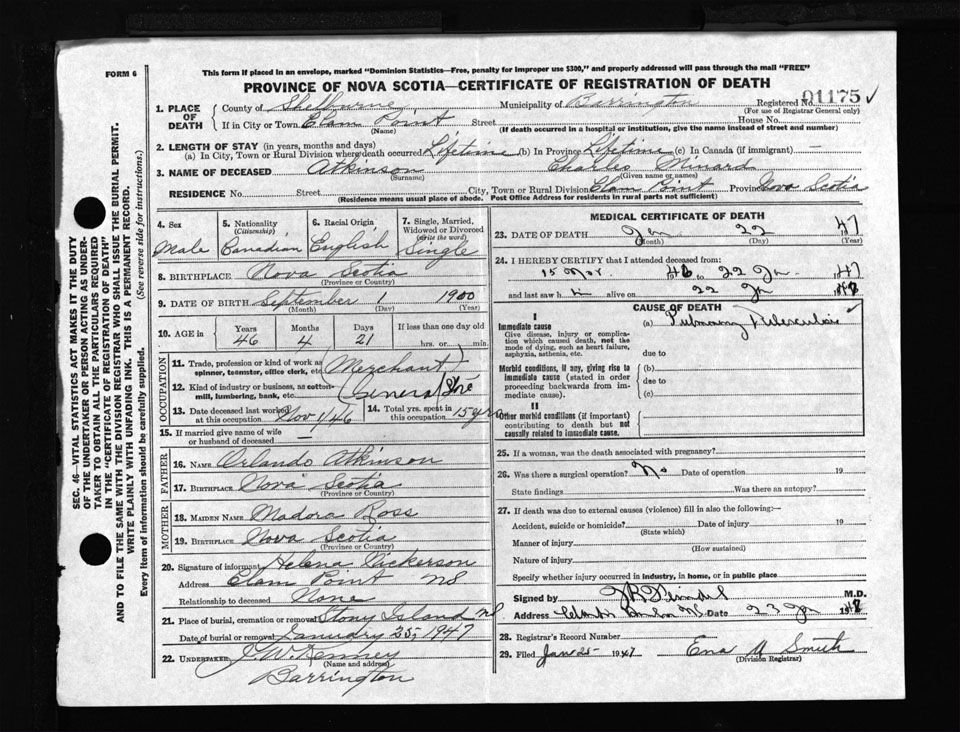 FORM 6
This form if placed in an envelope, marked "Dominion Statistics—Free, penalty for improper use $300," and properly addressed will pass through the mail "FREE"
PROVINCE OF NOVA SCOTIA—CERTIFICATE OF REGISTRATION OF DEATH
1. PLACE OF DEATH County of Shelburne Municipality of Barrington Registered No. 01175 ✓
(For use of Registrar General only)
If in City or Town Clam Point Street House No.
(Name) (If death occurred in a hospital or institution, give the name instead of street and number)
2. LENGTH OF STAY (in years, months and days)
(a) In City, Town or Rural Division where death occurred Lifetime (b) In Province Lifetime (c) In Canada (if immigrant) —
3. NAME OF DECEASED Atkinson Charles Minard
(Surname) (Given name or names)
RESIDENCE No. Street City, Town or Rural Division Clam Point Province Nova Scotia
(Residence means usual place of abode. Post Office Address for residents in rural parts not sufficient)
SEC. 46—VITAL STATISTICS ACT MAKES IT THE DUTY
OF THE UNDERTAKER OR PERSON ACTING AS UNDER-
TAKER TO OBTAIN ALL THE PARTICULARS REQUIRED
IN THE "CERTIFICATE OF REGISTRATION OF DEATH"
AND TO FILE THE SAME WITH THE DIVISION REGISTRAR WHO SHALL ISSUE THE BURIAL PERMIT.
WRITE PLAINLY WITH UNFADING INK. THIS IS A PERMANENT RECORD.
Every item of information should be carefully supplied. (See reverse side for instructions.)
4. Sex 5. Nationality (Citizenship) 6. Racial Origin 7. Single, Married, Widowed or Divorced (Write the word)
Male Canadian English Single
8. BIRTHPLACE Nova Scotia
(Province or Country)
9. DATE OF BIRTH September 1 1900
(Month) (Day) (Year)
10. AGE in Years Months Days If less than one day old
46 4 21 hrs. or min.
OCCUPATION
11. Trade, profession or kind of work as spinner, teamster, office clerk, etc. Merchant
12. Kind of industry or business, as cotton-mill, lumbering, bank, etc. General Store
13. Date deceased last worked at this occupation Nov 1/46 14. Total yrs. spent in this occupation 15 yrs
15. If married give name of wife or husband of deceased —
FATHER
16. NAME Orlando Atkinson
17. BIRTHPLACE Nova Scotia
(Province or Country)
MOTHER
18. MAIDEN NAME Madora Ross
19. BIRTHPLACE Nova Scotia
(Province or Country)
20. Signature of informant Helena Nickerson
Address Clam Point NS
Relationship to deceased None
21. Place of burial, cremation or removal Stony Island NS
Date of burial or removal January 25, 1947
22. UNDERTAKER J. W. Kenney
(Name and address)
Barrington
MEDICAL CERTIFICATE OF DEATH
23. DATE OF DEATH Jan 22 47
(Month) (Day) (Year)
24. I HEREBY CERTIFY that I attended deceased from:
15 Mar. 46 to 22 Jan 1947
and last saw him alive on 22 Jan
CAUSE OF DEATH
I
Immediate cause (a) Pulmonary Tuberculosis
Give disease, injury or complication which caused death, not the mode of dying, such as heart failure, asphyxia, asthenia, etc.
due to
Morbid conditions, if any, giving rise to immediate cause (stated in order proceeding backwards from immediate cause). (b)
due to
(c)
II
Other morbid conditions (if important) contributing to death but not causally related to immediate cause.
25. If a woman, was the death associated with pregnancy?
26. Was there a surgical operation? No Date of operation 19
State findings Was there an autopsy?
27. If death was due to external causes (violence) fill in also the following:—
Accident, suicide or homicide? Date of injury 19
(State which)
Manner of injury
(How sustained)
Nature of injury
Specify whether injury occurred in industry, in home, or in public place
Signed by M.D.
Address Date 23 Jan
28. Registrar's Record Number
29. Filed Jan 25 - 1947 Ena M Smith
(Division Registrar)